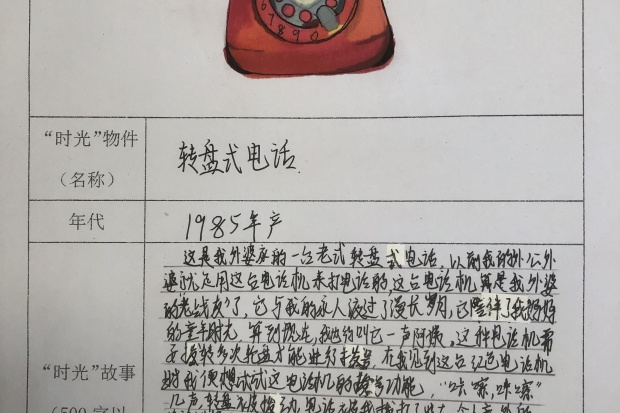 67890
“时光”物件
（名称）
转盘式电话
年代
1985年产
这是我外婆家的一台老式转盘式电话，以前我的外公外
婆就是用这台电话机来打电话的，这台电话机算是我外婆
的老战友了，它与我的家人渡过了漫长岁月，它陪伴了我妈妈
的童年时光，算到现在，我也约叫它一声阿姨，这种电话机需
要转多次轮盘才能进行，在我见到这台红色电话机
时我便想试试这电话机的功能，“咔嚓，咔嚓”
几声转盘
“时光”故事
（500字以